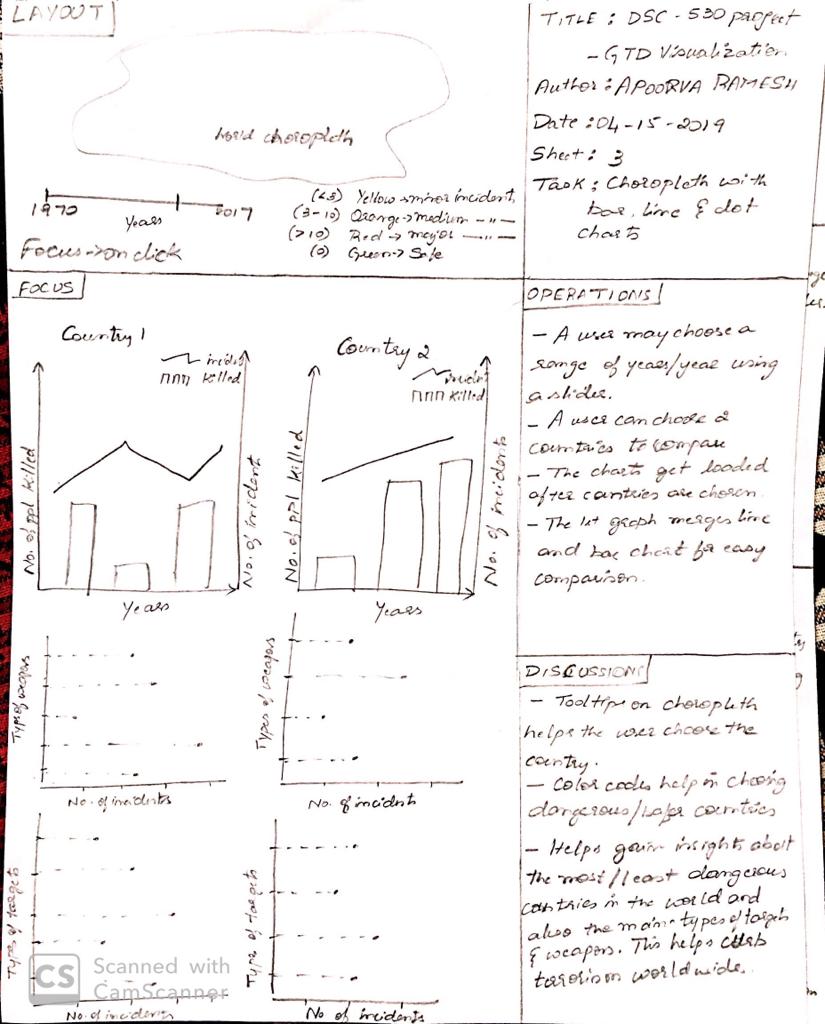 LAYOUT
World choropleth
1970
Years
2017
(<3) Yellow → minor incidents
(3-10) Orange → medium -"-
(>10) Red → major -"-
(0) Green → Safe
Focus → on click
TITLE : DSC - 530 project
- GTD Visualization
Author : APOORVA RAMESH
Date : 04-15-2019
Sheet : 3
Task : Choropleth with
bar, line & dot
charts
FOCUS
Country 1
incident
Killed
No. of ppl killed
No. of incident
Years
Country 2
incident
Killed
No. of ppl killed
No. of incidents
Years
Types of weapons
No. of incidents
Types of weapons
No. of incidents
Types of targets
No. of incidents
Types of targets
No of incidents
OPERATIONS
- A user may choose a
range of years/year using
a slider.
- A user can choose 2
countries to compare
- The charts get loaded
after countries are chosen.
- The 1st graph merges line
and bar chart for easy
comparison.
DISCUSSIONS
- Tooltip on choropleth
helps the user choose the
country.
- Color codes help in choosing
dangerous/safer countries
- Helps gain insights about
the most/least dangerous
countries in the world and
also the main types of targets
& weapons. This helps curb
terrorism worldwide.
CS Scanned with
CamScanner